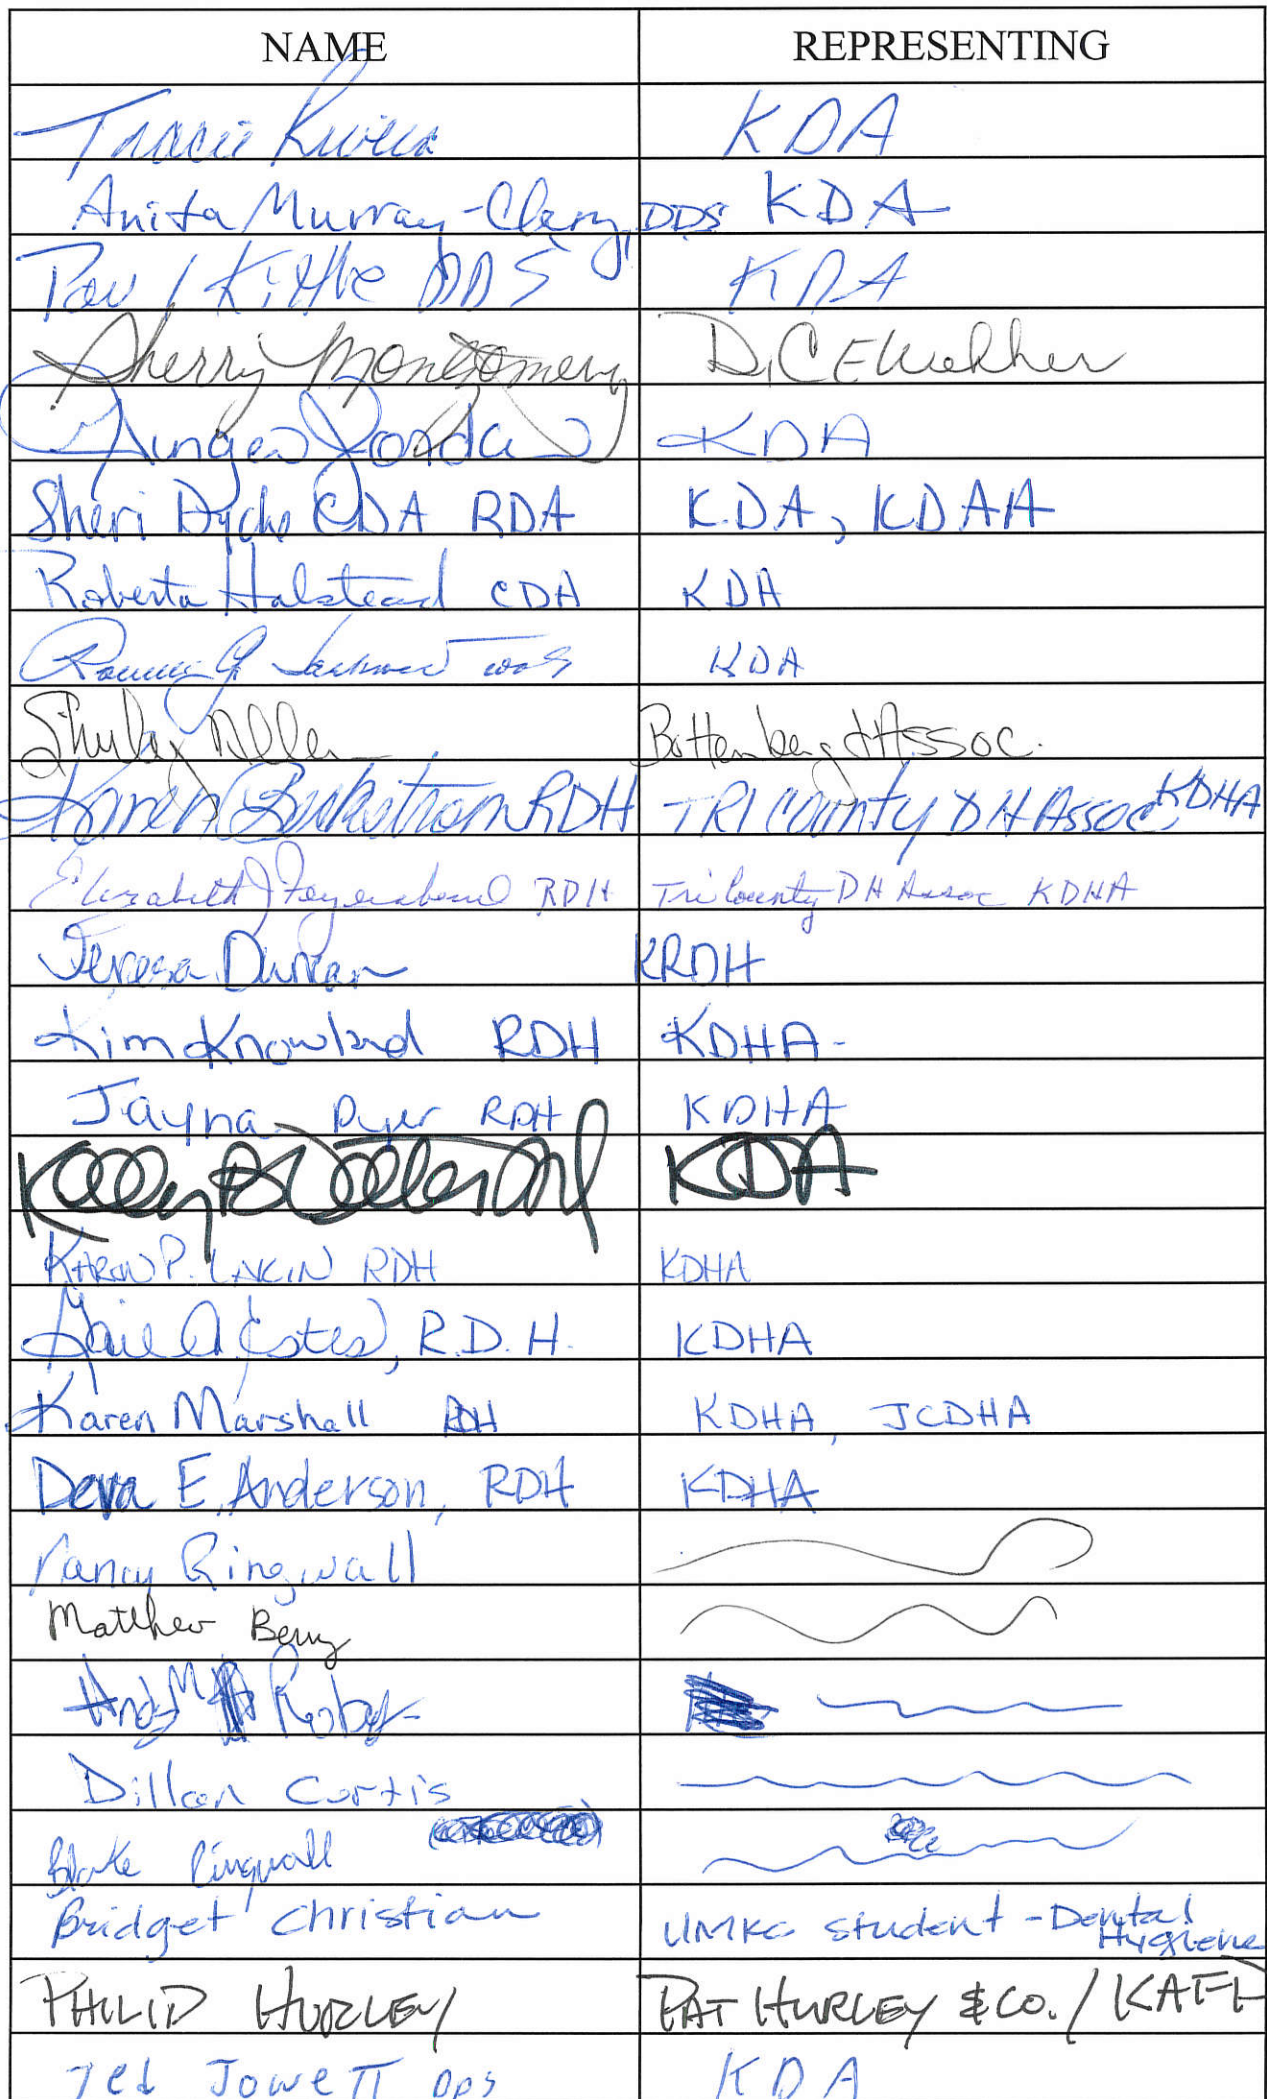 NAME REPRESENTING
Tracie KDA
Anita Murray-Clary, DDS KDA
Paul Kittle DDS KDA
Sherry Montgomery
Ginger Jorda KDA
Sheri Dyche CDA RDA KDA, KDAA
Roberta Halstead CDA KDA
KDA
Shirley Allen Bottenberg & Assoc.
Karen RDH TRI County DH Assoc, KDHA
Elizabeth J RDH Tri County DH Assoc KDHA
Teresa Duncan KRDH
Kim Knowland RDH KDHA-
Jayna Dyer RDH KDHA
Kelly KDA
Karen P. Lakin RDH KDHA
Gail A Estes, R.D.H. KDHA
Karen Marshall RDH KDHA, JCDHA
Deva E. Anderson, RDH KDHA
Nancy Ringwall
Matthew Berry
Andy M Roby
Dillon Curtis
Blake Ringwall
Bridget Christian UMKC Student - Dental
Hygiene
PHILIP HURLEY PAT HURLEY & CO. / KAFP
Ted Jowett DDS KDA